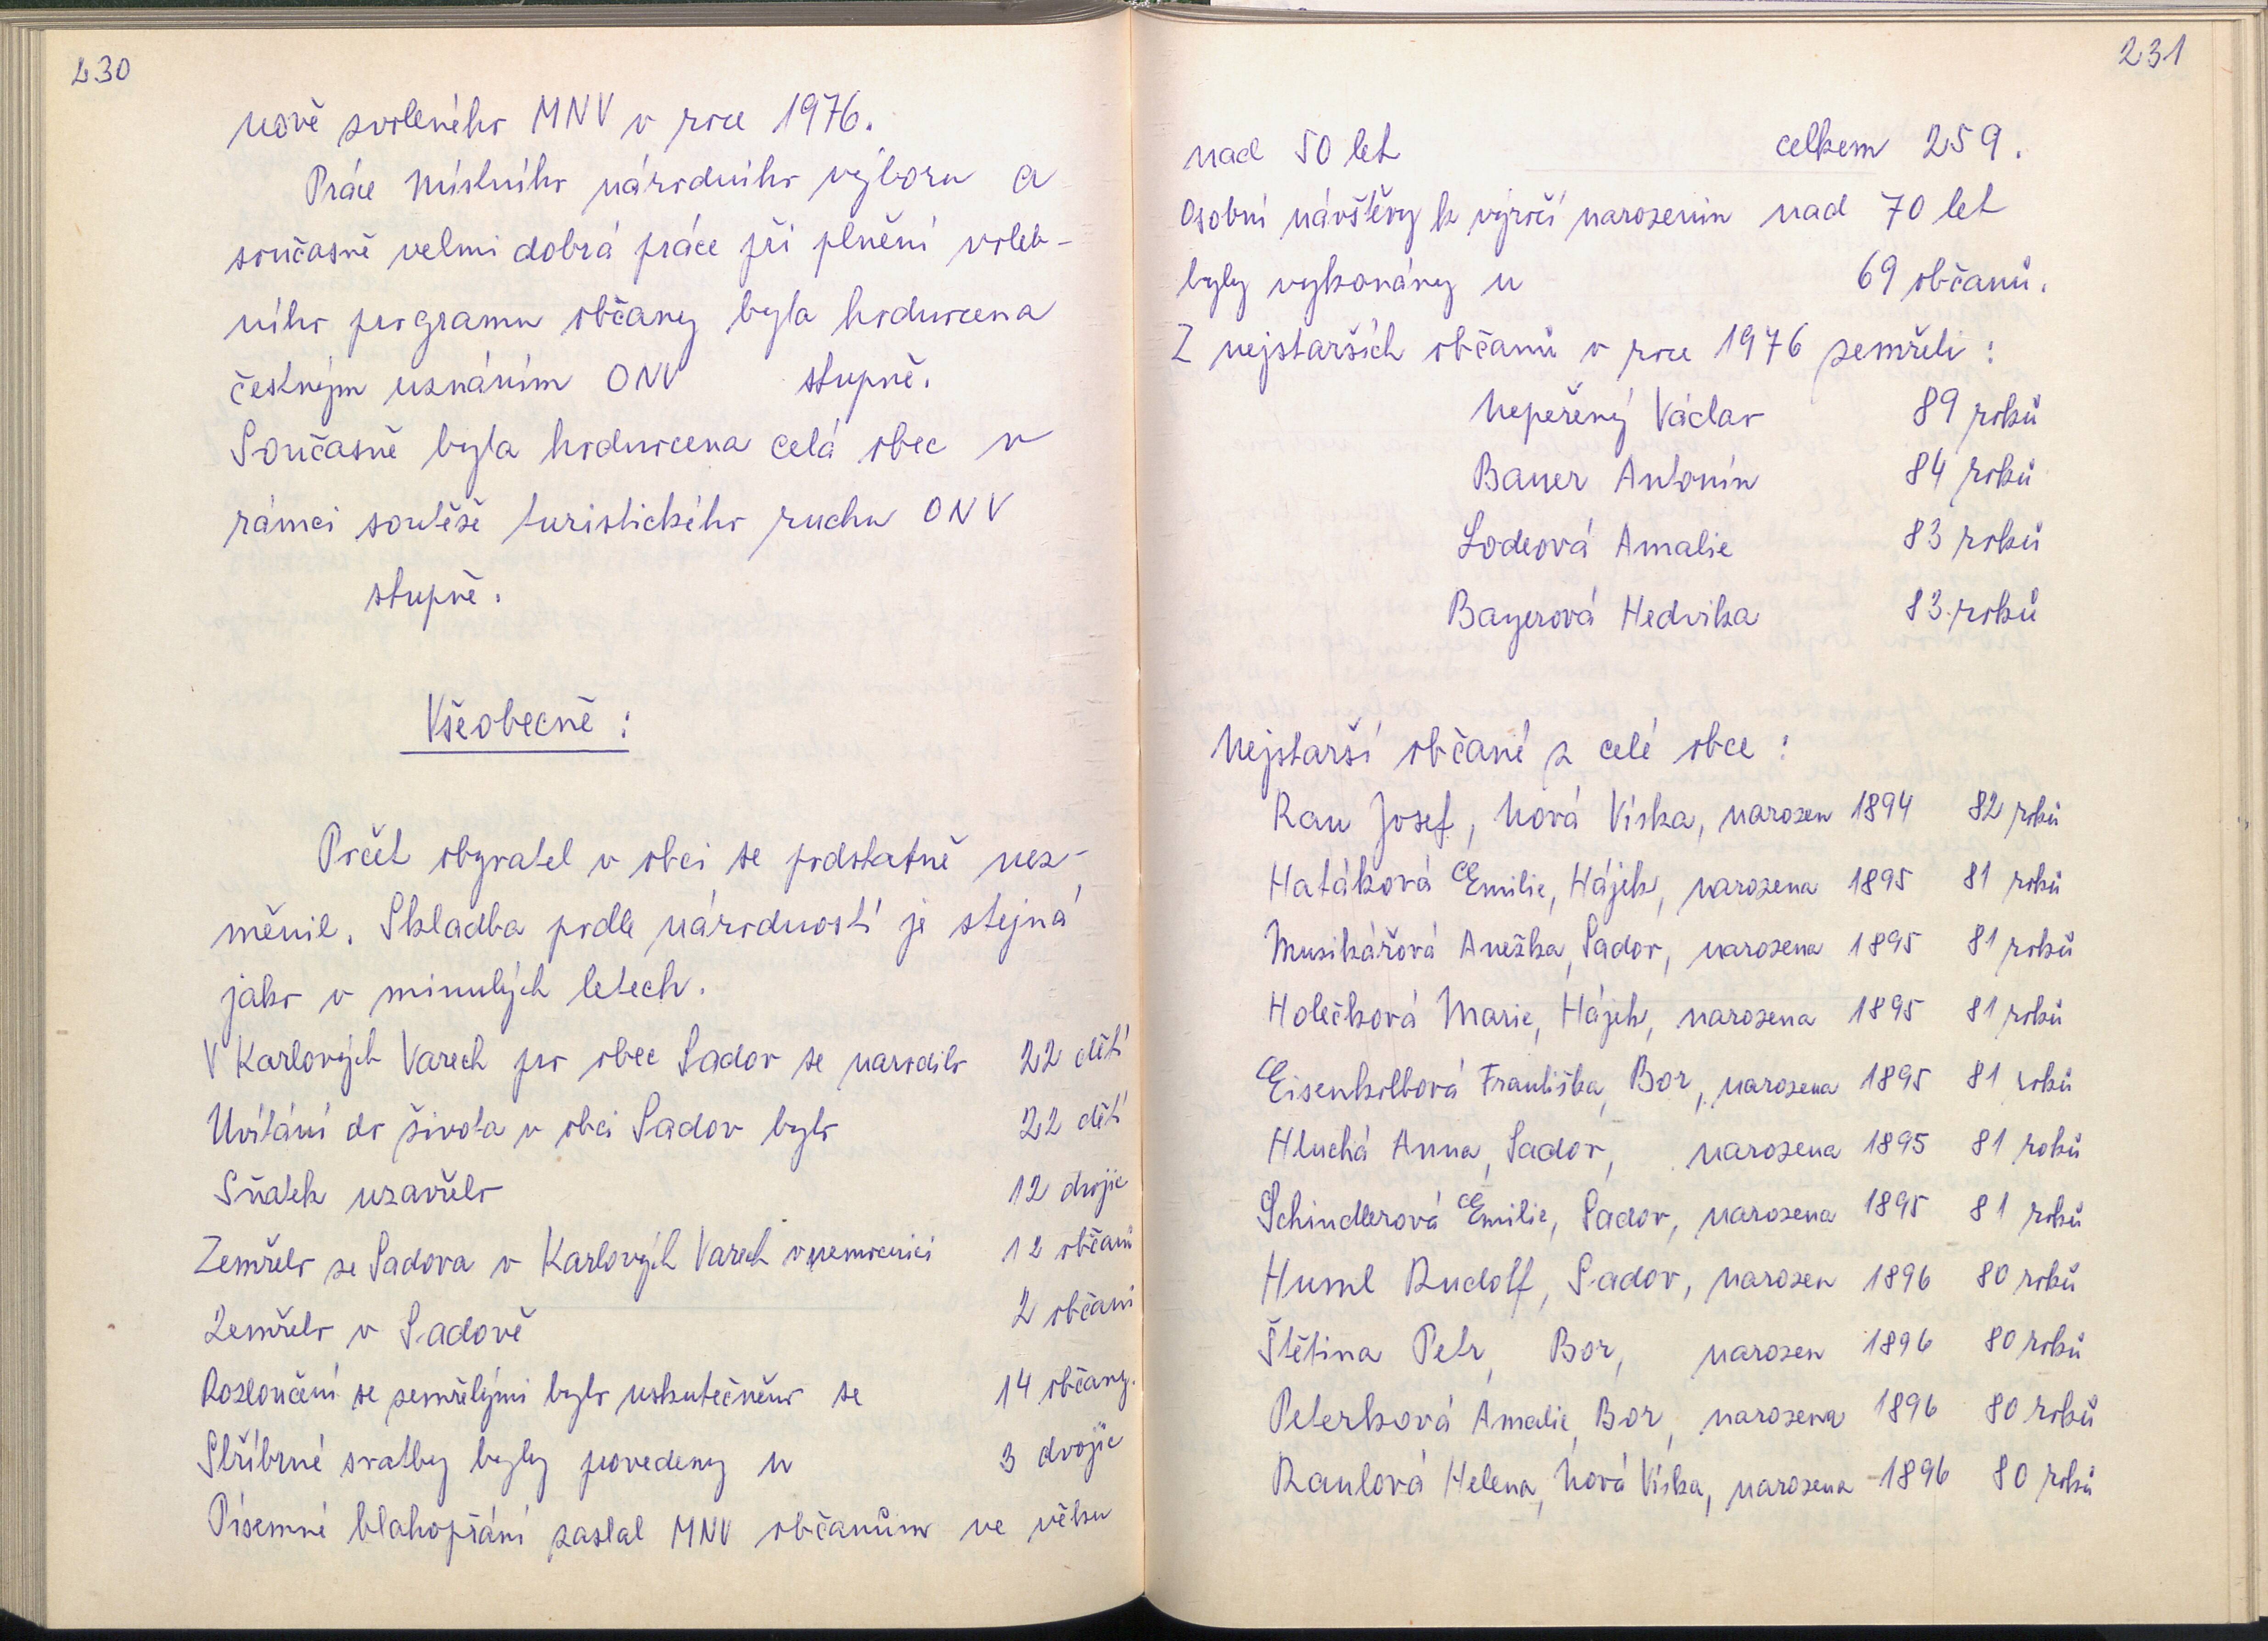 230
nově zvoleného MNV v roce 1976.
Práce Místního národního výboru a
současně velmi dobrá práce při plnění voleb-
ního programu občany byla hodnocena
čestným uznáním ONV stupně.
Současně byla hodnocena celá obec v
rámci soutěže turistického ruchu ONV
stupně.
Všeobecně:
Počet obyvatel v obci se podstatně nez-
měnil. Skladba podle národností je stejná
jako v minulých letech.
V Karlových Varech pro obec Sadov se narodilo 22 dětí
Uvítání do života v obci Sadov bylo 22 dětí
Sňatek uzavřelo 12 dvojic
Zemřelo ze Sadova v Karlových Varech v nemocnici 12 občanů
Zemřelo v Sadově 2 občani
Rozloučení se zemřelými bylo uskutečněno se 14 občany.
Stříbrné svatby byly provedeny u 3 dvojic
Písemné blahopřání zaslal MNV občanům ve věku
231
nad 50 let celkem 259.
Osobní návštěvy k výročí narozenin nad 70 let
byly vykonány u 69 občanů.
Z nejstarších občanů v roce 1976 zemřeli:
Nepeřený Václav 89 roků
Bauer Antonín 84 roků
Lodeová Amalie 83 roků
Bayerová Hedvika 83 roků
Nejstarší občané z celé obce:
Rau Josef, Nová Víska, narozen 1894 82 roků
Hatáková Emilie, Hájek, narozena 1895 81 roků
Musikářová Anežka, Sadov, narozena 1895 81 roků
Holečková Marie, Hájek, narozena 1895 81 roků
Eisenkolbová Františka, Bor, narozena 1895 81 roků
Hluchá Anna, Sadov, narozena 1895 81 roků
Schindlerová Emilie, Sadov, narozena 1895 81 roků
Huml Rudolf, Sadov, narozen 1896 80 roků
Štětina Petr, Bor, narozen 1896 80 roků
Peterková Amalie, Bor, narozena 1896 80 roků
Raulová Helena, Nová Víska, narozena 1896 80 roků